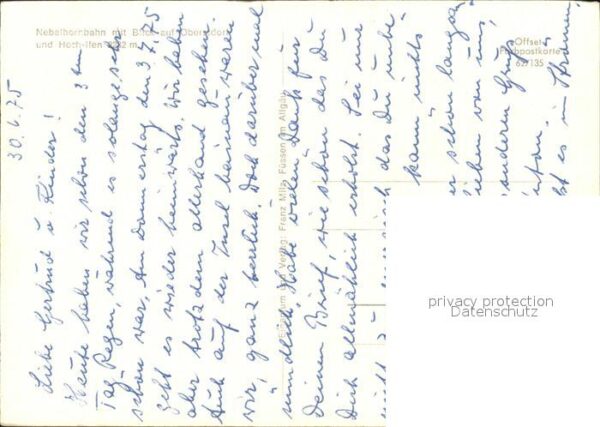 Nebelhornbahn mit Blick auf Oberstdorf
und Hoch-Ifen 2232 m
Offset
Farbpostkarte
62/135
Verlag: Franz Milz, Füssen im Allgäu
30.6.75
Liebe Gertrud u. Kinder!
Heute haben wir schon den 3ten
Tag Regen, während es solange sehr
schön war. Am Donnerstag den 3.7.75
geht es wieder heimwärts. Wir haben
aber trotzdem allerhand gesehen.
Auch auf der Insel Mainau waren
wir, ganz herrlich. Doch darüber mal
mündlich. Habe vielen Dank für
Deinen Brief, wie schön das Du
Dich allmählich erholst. Sei nur
nicht das Du unbe
kann nichts
er schon langsam
lieben von uns,
anderen Gruß
Anton.
bt es in Strömen,
privacy protection
Datenschutz